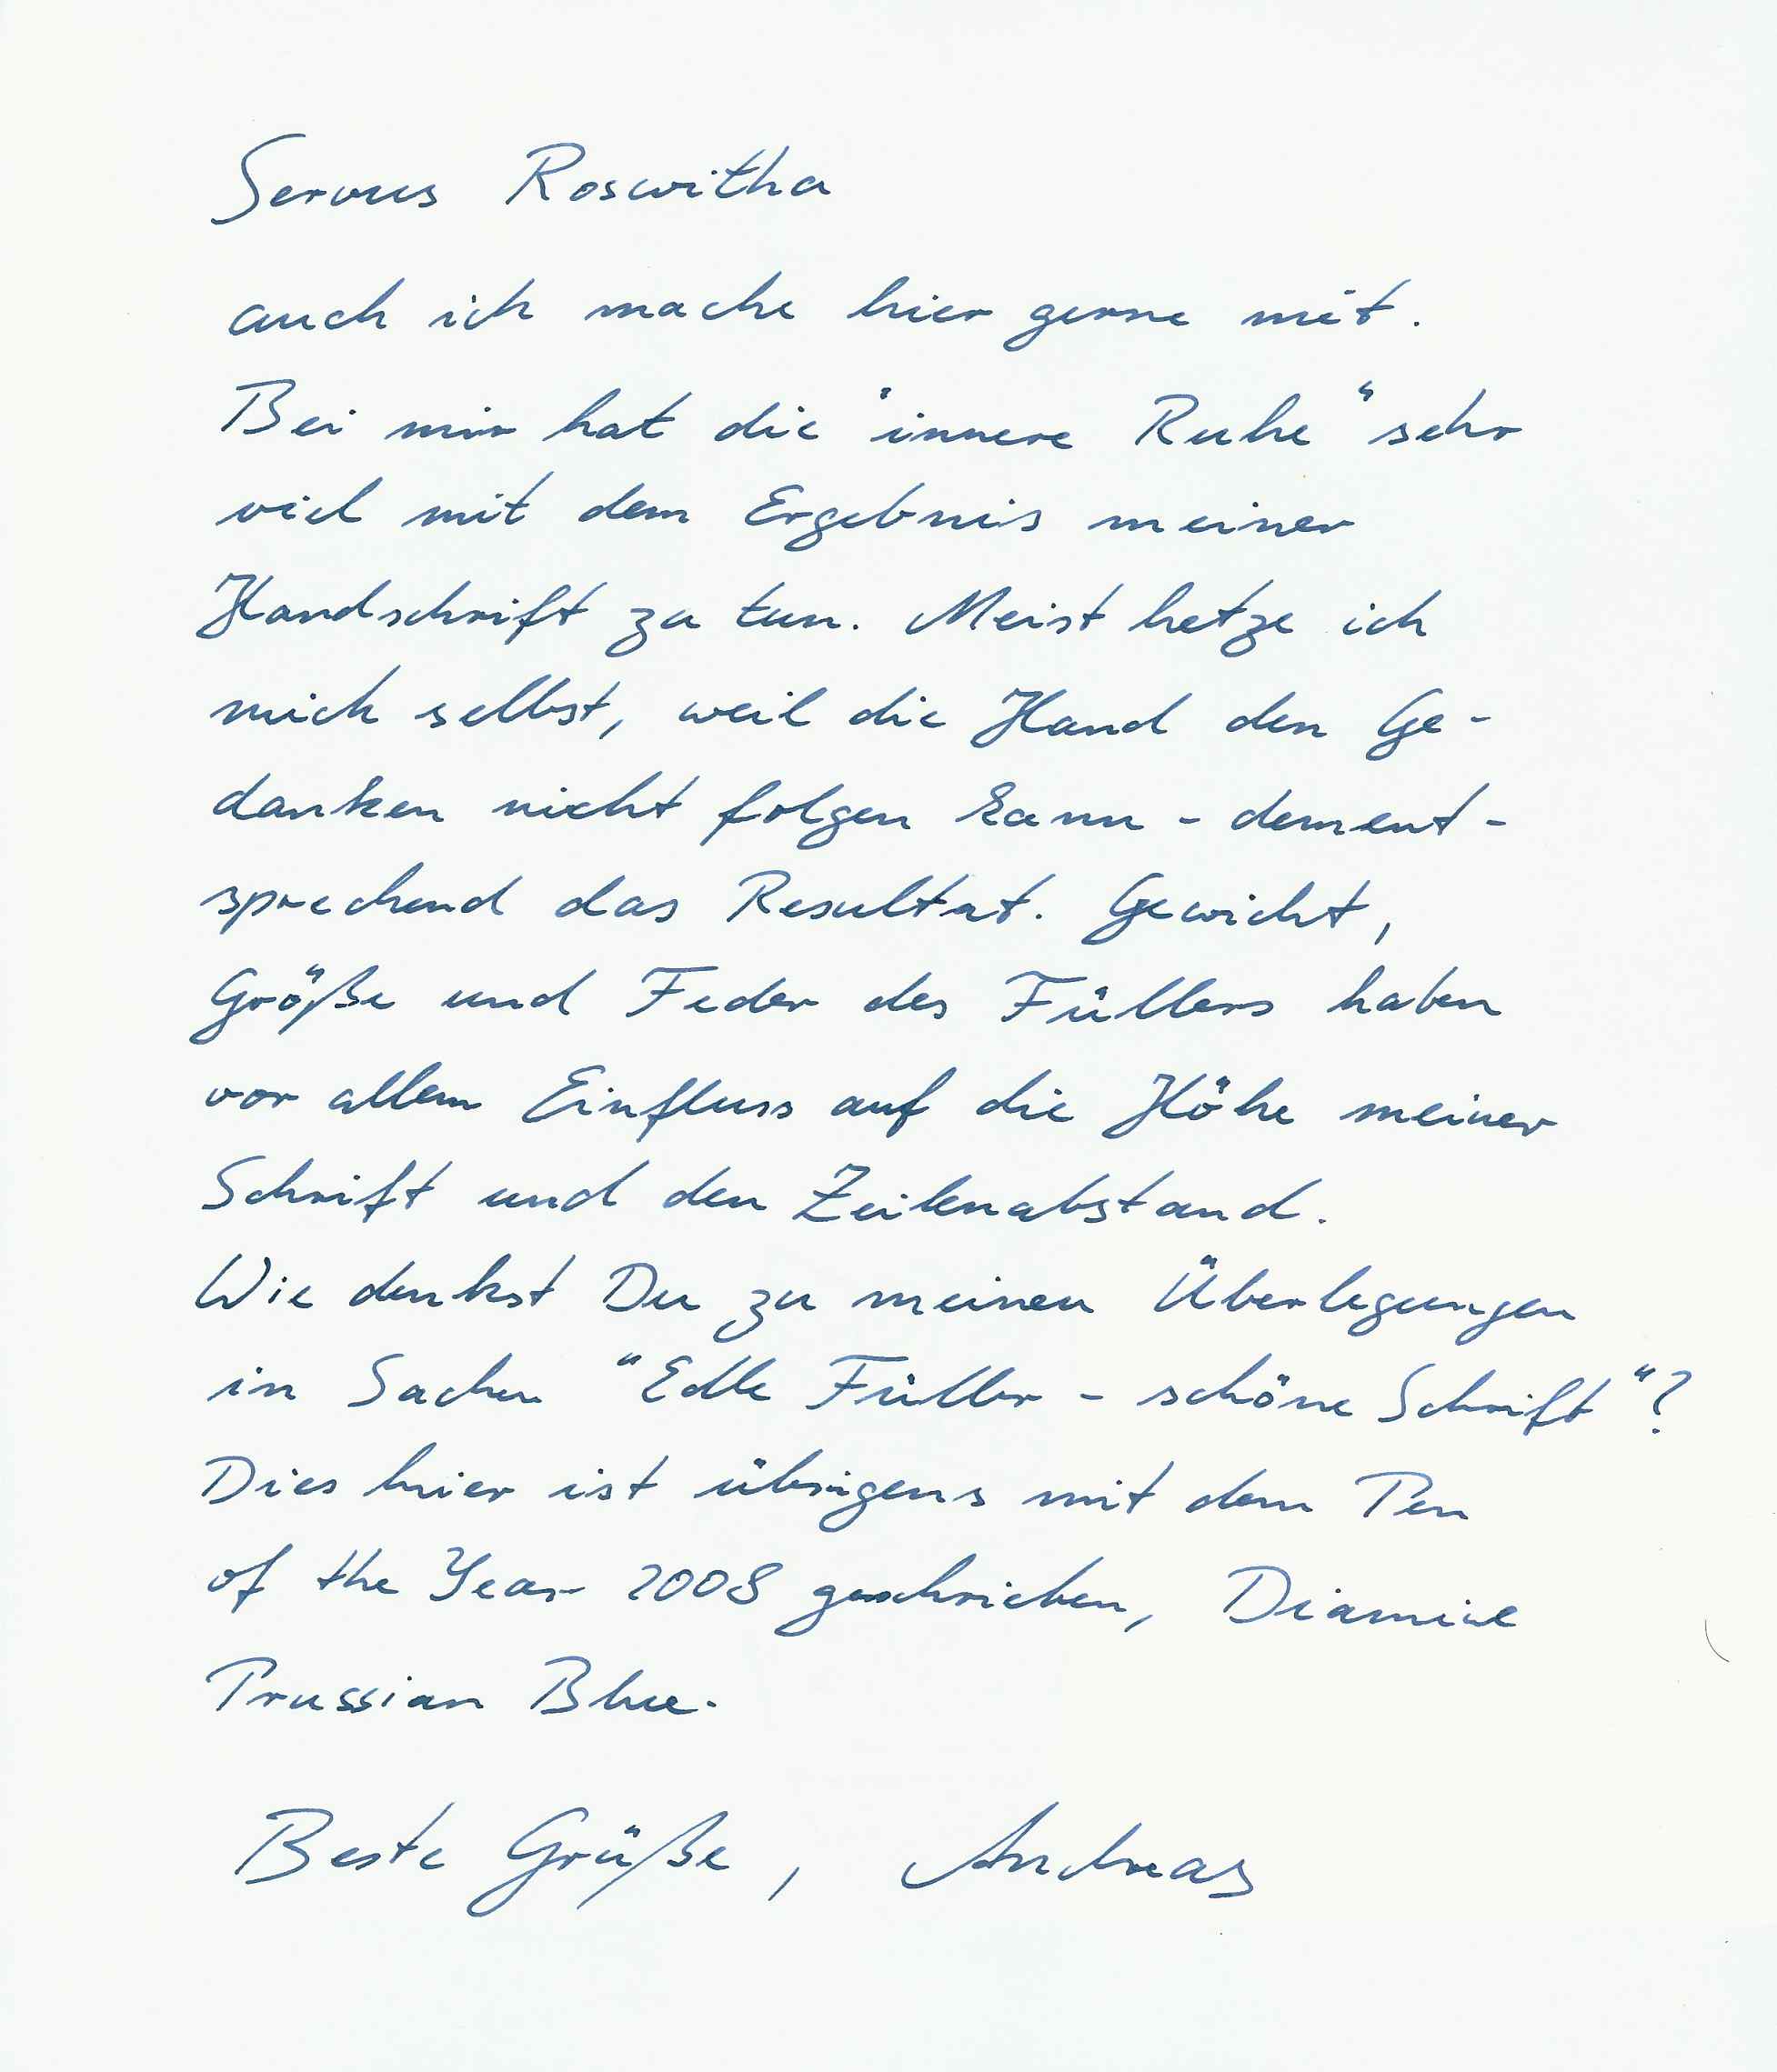 Servus Roswitha
auch ich mache hier gerne mit.
Bei mir hat die "innere Ruhe" sehr
viel mit dem Ergebnis meiner
Handschrift zu tun. Meist hetze ich
mich selbst, weil die Hand den Ge-
danken nicht folgen kann - dement-
sprechend das Resultat. Gewicht,
Größe und Feder des Füllers haben
vor allem Einfluss auf die Höhe meiner
Schrift und den Zeilenabstand.
Wie denkst Du zu meinen Überlegungen
in Sachen "Edle Füller - schöne Schrift"?
Dies hier ist übrigens mit dem Pen
of the Year 2008 geschrieben, Diamine
Prussian Blue.
Beste Grüße, Andreas